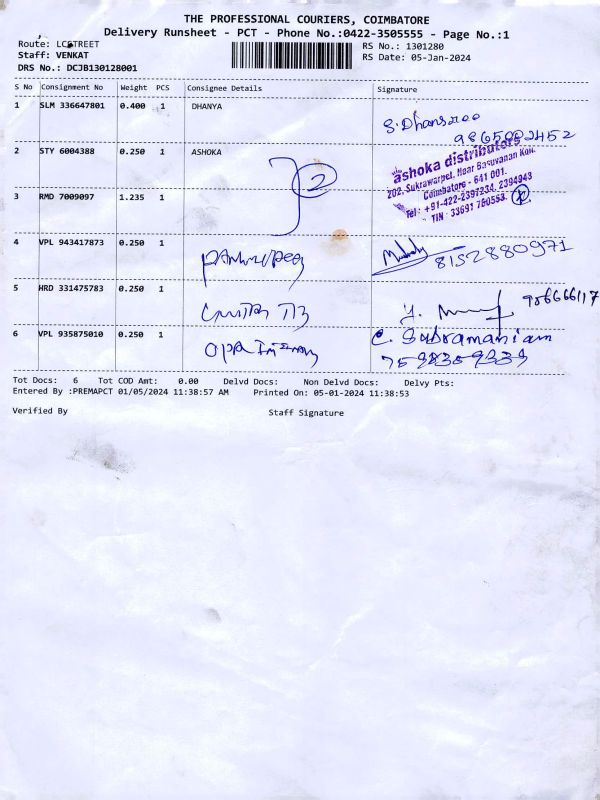 THE PROFESSIONAL COURIERS, COIMBATORE
Delivery Runsheet - PCT - Phone No.:0422-3505555 - Page No.:1
Route: LCSTREET
RS No.: 1301280
Staff: VENKAT
RS Date: 05-Jan-2024
DRS No.: DCJB130128001
S No Consignment No Weight PCS Consignee Details Signature
1 SLM 336647801 0.400 1 DHANYA
2 STY 6004388 0.250 1 ASHOKA
2
ashoka distributors
202, Sukrawarpet, Near Basuvanan Koil,
Coimbatore - 641 001.
Tel : +91-422-2397234, 2394943
3 RMD 7009097 1.235 1
4 VPL 943417873 0.250 1
8152880971
5 HRD 331475783 0.250 1
6 VPL 935875010 0.250 1
C. Subramaniam
Tot Docs: 6 Tot COD Amt: 0.00 Delvd Docs: Non Delvd Docs: Delvy Pts:
Entered By :PREMAPCT 01/05/2024 11:38:57 AM Printed On: 05-01-2024 11:38:53
Verified By Staff Signature